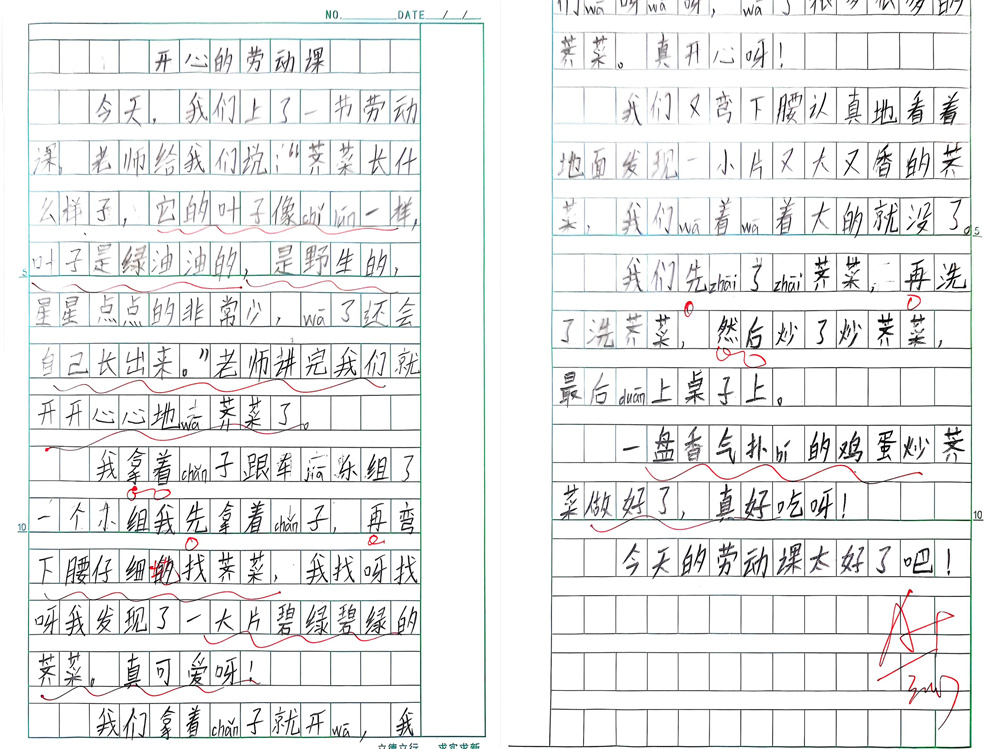 NO. DATE / /
开心的劳动课
今天，我们上了一节劳动
课，老师给我们说："荠菜长什
么样子，它的叶子像chǐ lún一样，
叶子是绿油油的，是野生的，
星星点点的非常少，wā了还会
自己长出来。"老师讲完我们就
开开心心地wā荠菜了。
我拿着chǎn子跟牟jiā乐组了
一个小组我先拿着chǎn子，再弯
下腰仔细地找荠菜，我找呀找
呀我发现了一大片碧绿碧绿的
荠菜。真可爱呀！
我们拿着chǎn子就开wā，我
立德立行 求实求新
们wā呀wā呀，wā了很多很多的
荠菜。真开心呀！
我们又弯下腰认真地看着
地面发现一小片又大又香的荠
菜，我们wā着wā着大的就没了。
我们先zhāi了zhāi荠菜，再洗
了洗荠菜，然后炒了炒荠菜，
最后duān上桌子上。
一盘香气扑bí的鸡蛋炒荠
菜做好了，真好吃呀！
今天的劳动课太好了吧！
5
10
5
10
A+